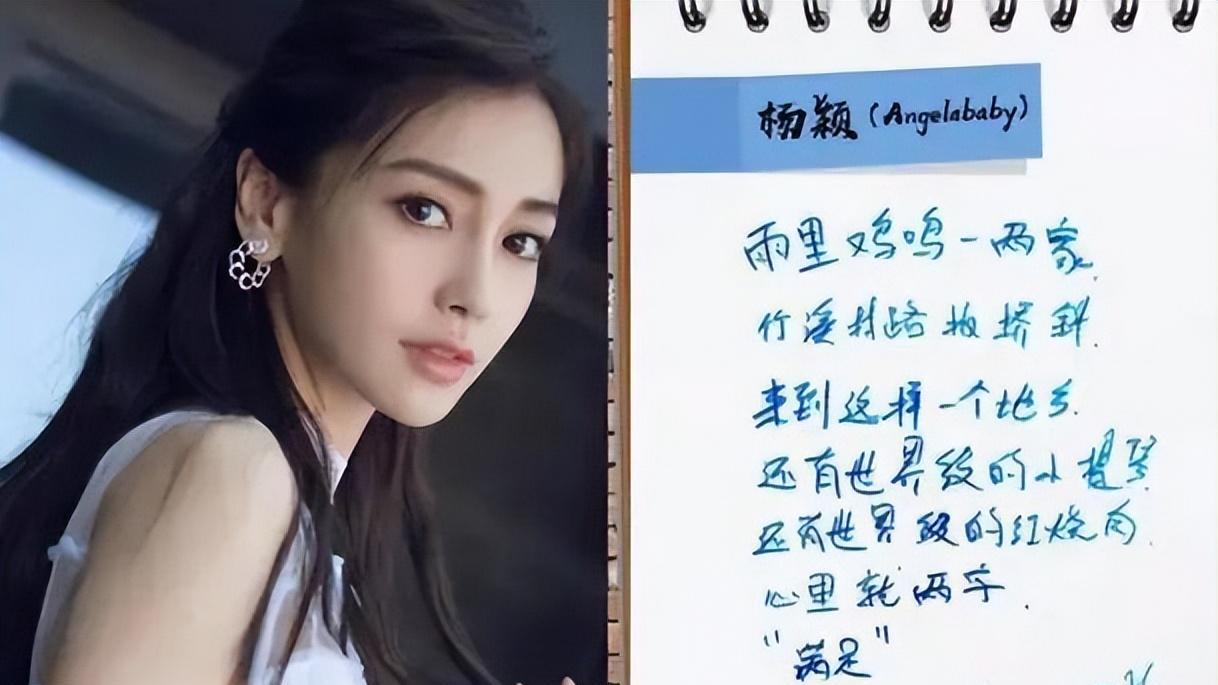 杨颖(Angelababy)
雨里鸡鸣一两家.
竹溪村路板桥斜.
来到这样一个地方.
还有世界级的小提琴.
还有世界级的红烧肉.
心里就两字.
"满足"